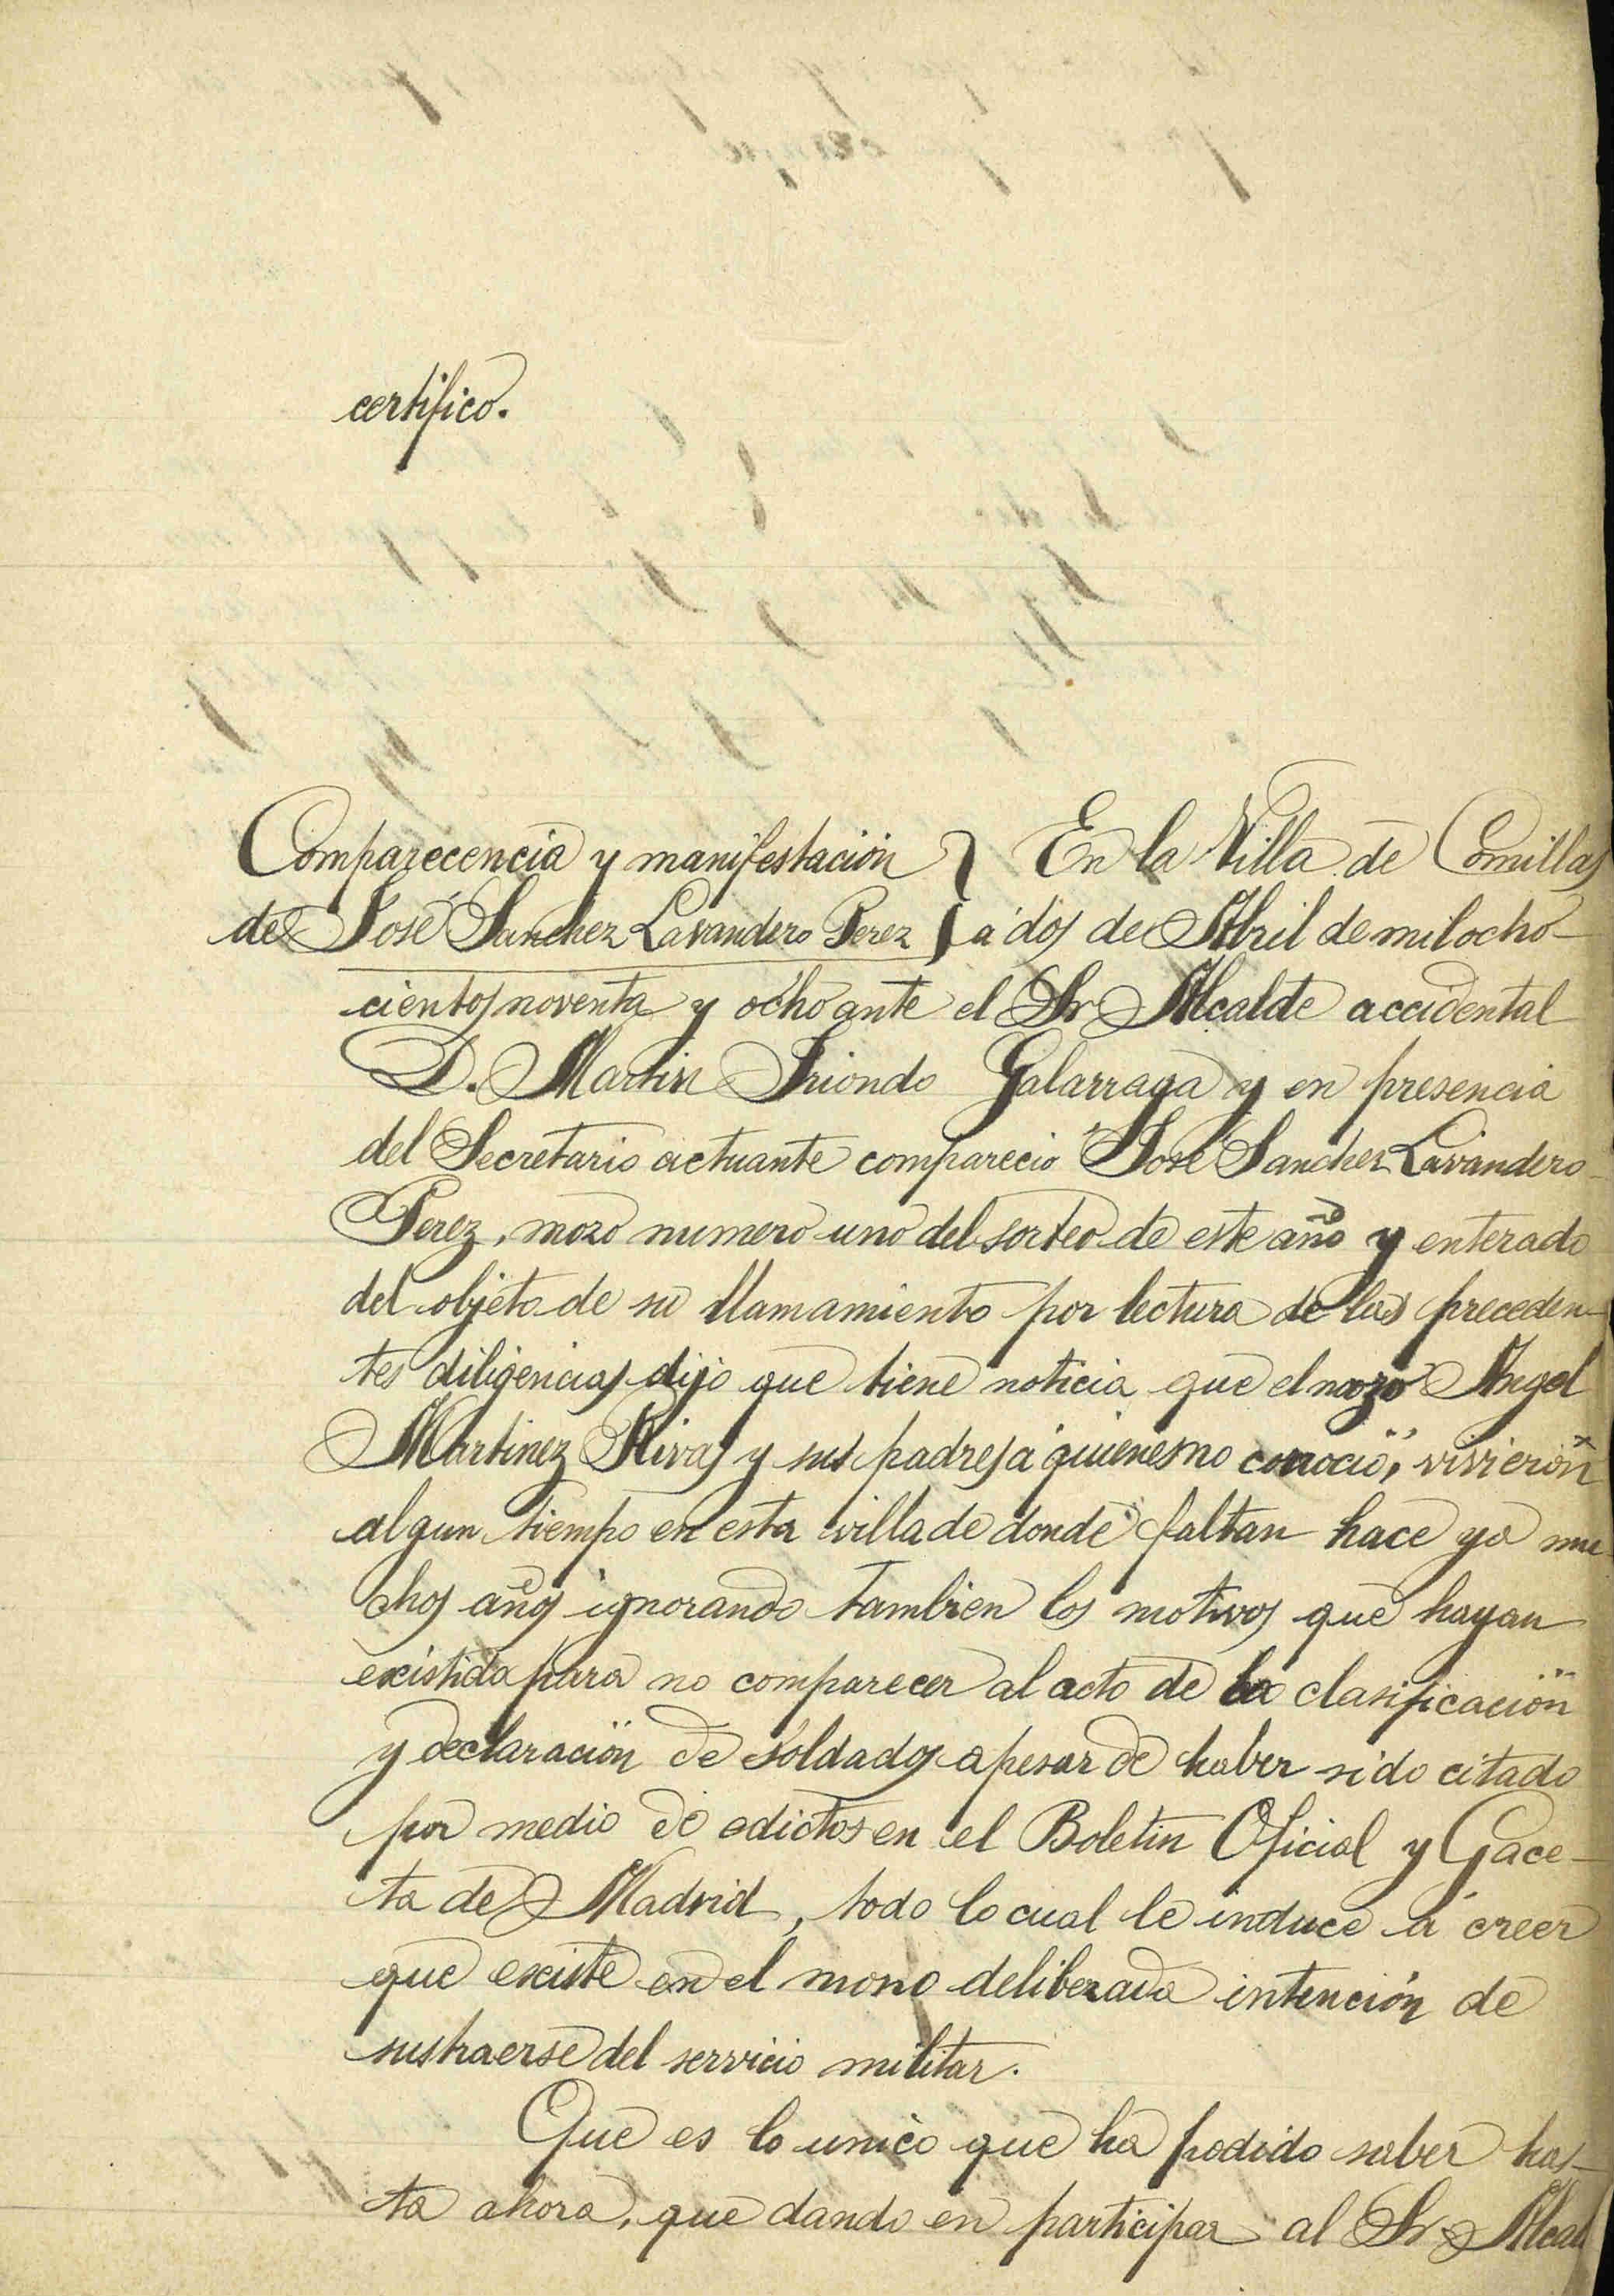 certifico.
Comparecencia y manifestación } En la Villa de Comillas
de José Sanchez Lavandero Perez } á dos de Abril de mil ocho-
cientos noventa y ocho ante el Sr Alcalde accidental
D. Martin Iriondo Galarraga y en presencia
del Secretario actuante compareció José Sanchez Lavandero
Perez, mozo numero uno del sorteo de este año y enterado
del objeto de su llamamiento por lectura de las preceden-
tes diligencias dijo que tiene noticia que el mozo Angel
Martinez Rivas y sus padres á quienes no conoció, vivieron
algun tiempo en esta villa de donde faltan hace ya mu
chos años ignorando tambien los motivos que hayan
existido para no comparecer al acto de la clasificación
y declaración de soldados apesar de haber sido citado
por medio de edictos en el Boletin Oficial y Gace-
ta de Madrid, todo lo cual le induce á creer
que existe en el mozo deliberada intención de
sustraerse del servicio militar.
Que es lo unico que ha podido saber has-
ta ahora, quedando en participar al Sr Alcal